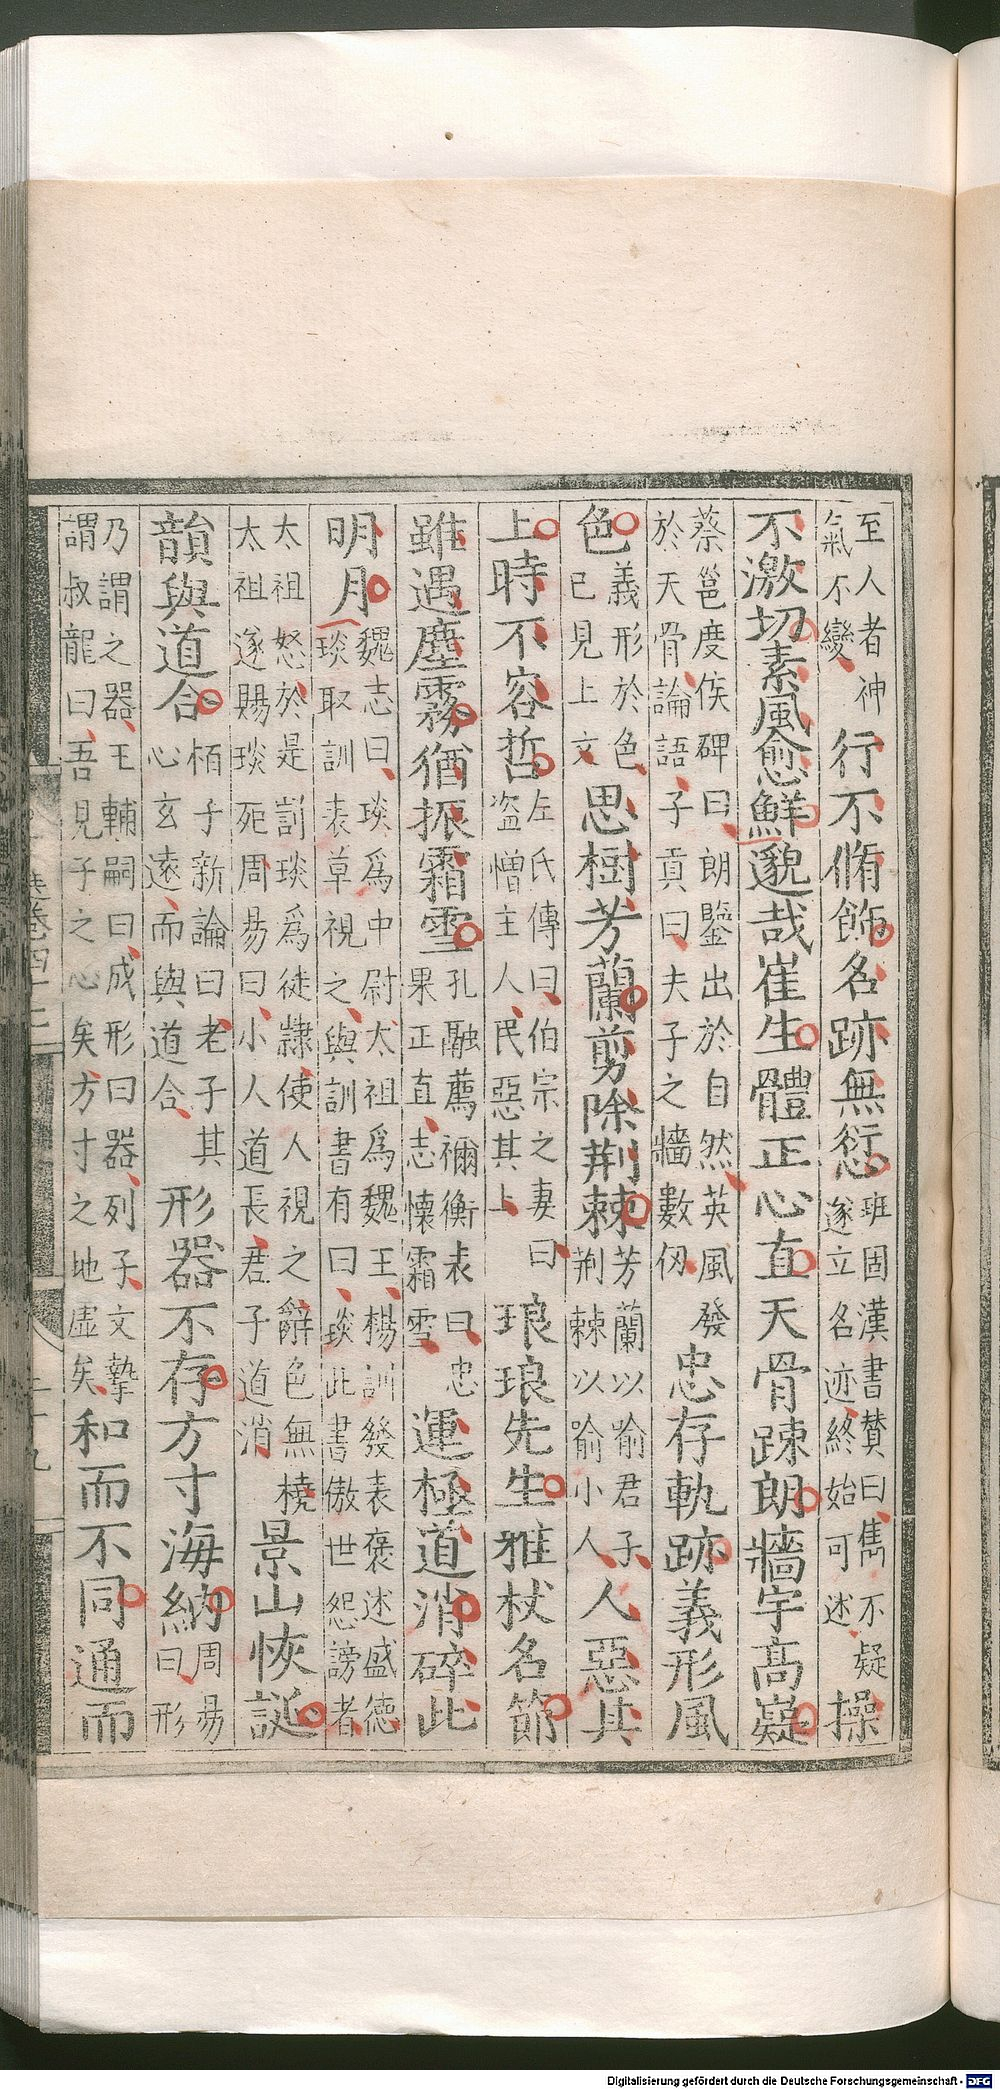 至人者神
氣不變
行不脩飾名跡無愆
班固漢書贊曰雋不疑
遂立名迹終始可述
操
不激切素風愈鮮邈哉崔生體正心直天骨疎朗牆宇高嶷
蔡邕度侯碑曰朗鑒出於自然英風發
於天骨論語子貢曰夫子之牆數仞
忠存軌跡義形風
色
義形於色
已見上文
思樹芳蘭剪除荆棘
芳蘭以喻君子
荆棘以喻小人
人惡其
上時不容哲
左氏傳曰伯宗之妻曰
盜憎主人民惡其上
琅琅先生雅杖名節
雖遇塵霧猶振霜雪
孔融薦禰衡表曰忠
果正直志懷霜雪
運極道消碎此
明月
魏志曰琰爲中尉太祖爲魏王楊訓發表褒述盛德
琰取訓表草視之與訓書有曰琰此書傲世怨謗者
太祖怒於是罰琰爲徒隸使人視之辭色無橈
太祖遂賜琰死周易曰小人道長君子道消
景山恢誕
韻與道合
栢子新論曰老子其
心玄遠而與道合
形器不存方寸海納
周易
曰形
乃謂之器王輔嗣曰成形曰器列子文摯
謂叔龍曰吾見子之心矣方寸之地虛矣
和而不同通而
Digitalisierung gefördert durch die Deutsche Forschungsgemeinschaft - DFG